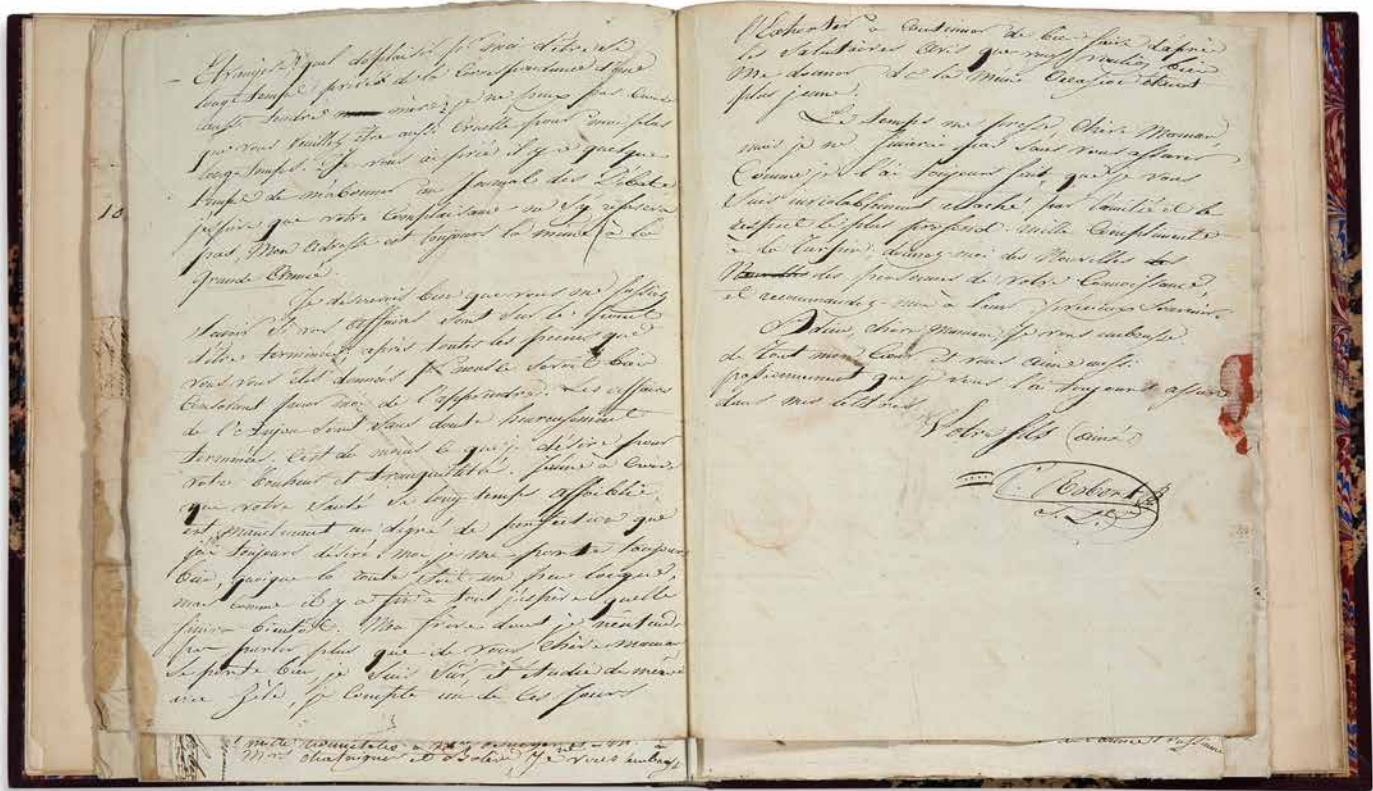 Etranger. Quel déplaisir pour moi d'être si
long temps privé de la correspondance d'une
aussi tendre mère; je ne peux pas croire
que vous veuillez être aussi cruelle pour moi plus
long temps. Je vous ai priée il y a quelque
temps de m'abonner au Journal des Débats
j'espère que votre complaisance ne s'y refusera
pas. Mon adresse est toujours la même (à la
grande Armée.
10
Je désirerois bien que vous me fassiez
savoir si vos affaires sont sur le point
d'être terminées, après toutes les peines que
vous vous êtes données il me seroit bien
consolant pour moi de l'apprendre. Les affaires
de l'Anjou sont sans doute heureusement
terminées. C'est du moins ce que je désire pour
votre bonheur et tranquillité. J'aime à croire
que votre santé si long temps affoiblie,
est maintenant au degré de perfection que
j'ai toujours désiré. moi je me porte toujours
bien, quoique la route soit un peu longue,
mais comme il y a fin à tout j'espère quelle
finira bientôt. Mon frère dont je n'entends
pas parler plus que de vous chère maman
se porte bien, je suis sûr, et étudie de même
avec zèle, je compte un de ces jours
mille
Mrs et je vous embrasse
l'Exhorter à continuer de bien faire d'après
les salutaires avis que vous vouliez bien
me donner de la même occasion étant
plus jeune.
Le temps me presse, chère Maman,
mais je ne finirai pas sans vous assurer
comme je l'ai toujours fait, que je vous
suis inviolablement attaché par l'amitié et le
respect le plus profond. mille compliments
à la Turpin; donnez-moi des Nouvelles des
des personnes de votre connoissance,
et recommandez-moi à leur précieux souvenir.
Adieu, chère maman. Je vous embrasse
de tout mon cœur et vous aime aussi
passionnement que je vous l'ai toujours assuré
dans mes lettres
Votre fils (aimé)
C. Robert
S. L.